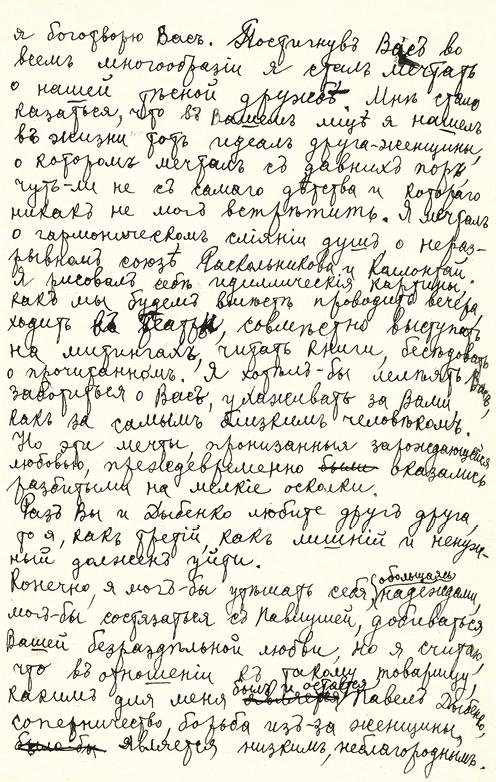 я боготворю Васъ. Постигнувъ Васъ во
всемъ многообразіи я сталъ мечтать
о нашей тѣсной дружбѣ. Мнѣ стало
казаться, что въ Вашемъ лицѣ я нашелъ
въ жизни тотъ идеалъ друга-женщины,
о которомъ мечталъ съ давнихъ поръ,
чуть-ли не съ самаго дѣтства и котораго
никакъ не могъ встрѣтить. Я мечталъ
о гармоническомъ сліяніи душъ, о нераз-
рывномъ союзѣ Раскольникова и Коллонтай.
Я рисовалъ себѣ идиллическія картины,
какъ мы будемъ вмѣстѣ проводить вечера,
ходить въ театры, совмѣстно выступать
на митингахъ, читать книги, бесѣдовать
о прочитанномъ. Я хотѣлъ-бы лелѣять Васъ,
заботиться о Васъ, ухаживать за Вами
какъ за самымъ близкимъ человѣкомъ.
Но эти мечты, пронизанныя зарождающейся
любовью, преждевременно были оказались
разбитыми на мелкіе осколки.
Разъ Вы и Дыбенко любите другъ друга,
то я, какъ третій, какъ лишній и ненуж-
ный долженъ уйти.
Конечно, я могъ-бы утѣшать себя, обольщаясь надеждами,
могъ-бы состязаться съ Павлушей, добиваться
Вашей безраздѣльной любви, но я считаю,
что въ отношеніи къ такому товарищу,
какимъ для меня былъ и остается Павелъ Дыбенко,
соперничество, борьба изъ-за женщины,
было-бы является низкимъ, неблагороднымъ.